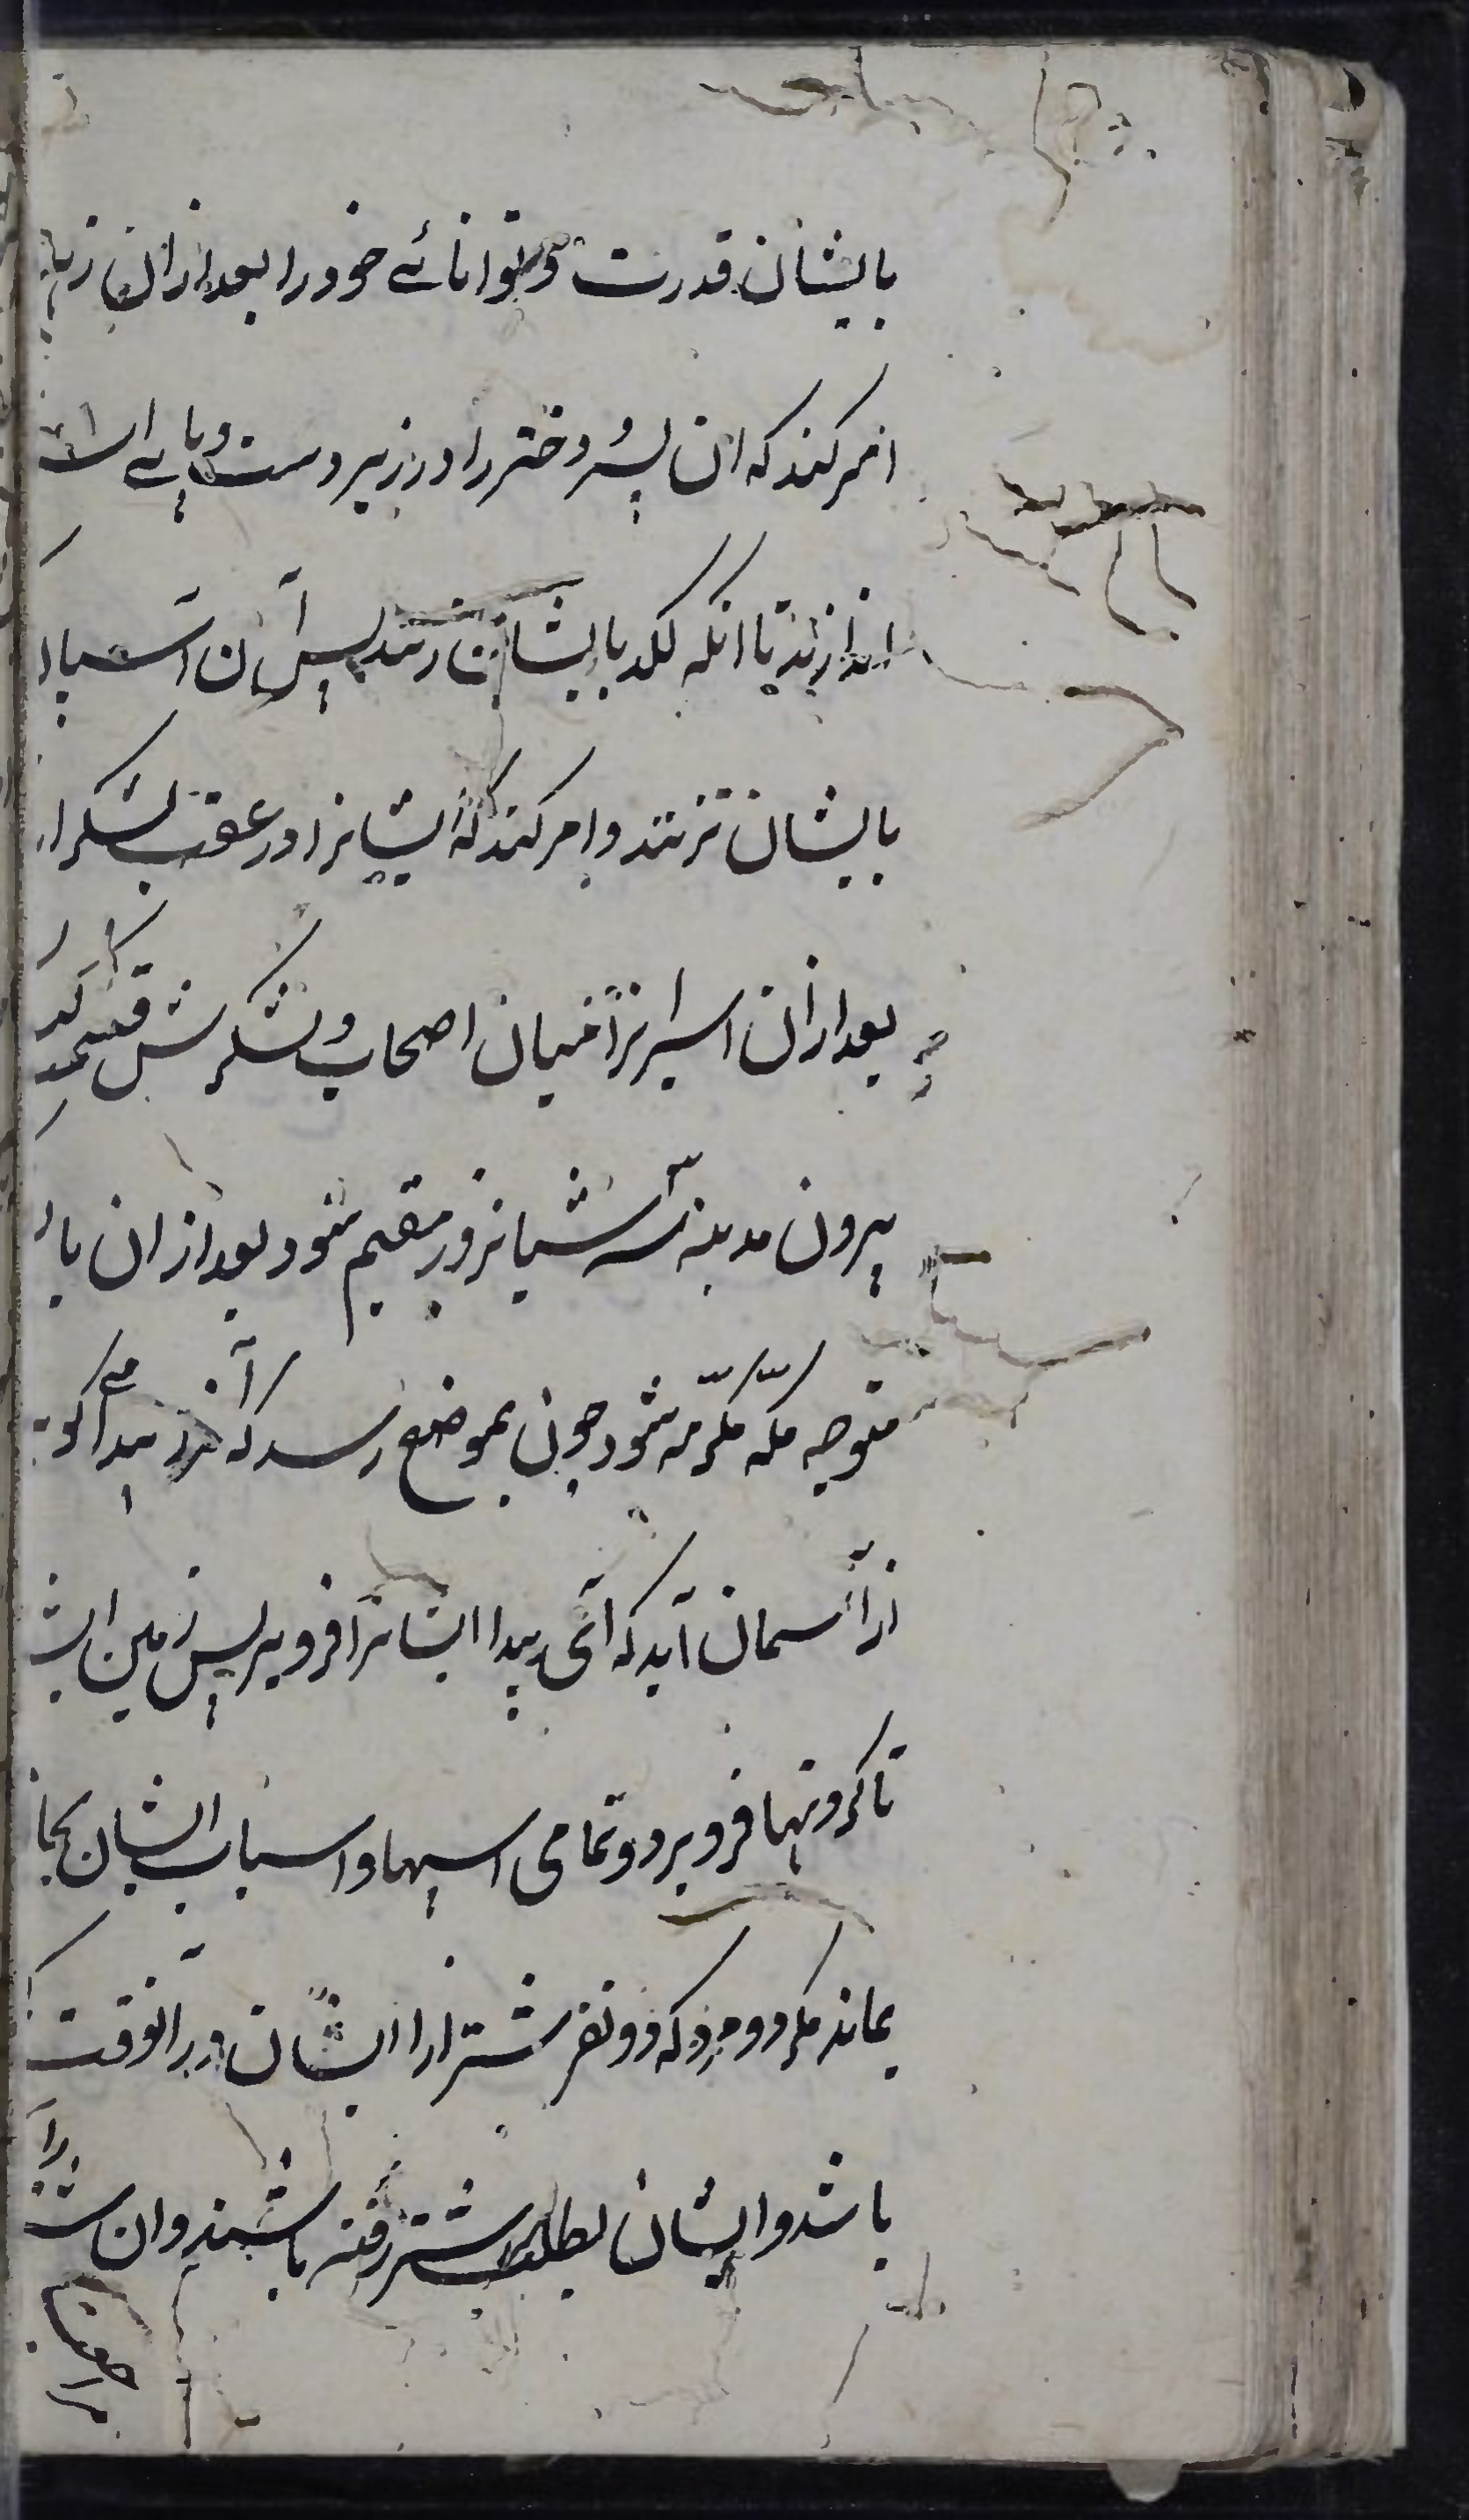 بایشان قدرت و توانائے خود را بعد ازان
امر کند که ان پسر و دختر را در زیر دست و پاے
اندازند تا انکه لکد بایشان زنند پس آن
بایشان نزنند و امر کند که ایشانرا در عقب لشکر
بعد ازان اسیرانرا میان اصحاب و لشکرش قسمت کند
بیرون مدینه سه شبانروز مقیم شود بعد از ان با
متوجه مکه مکرّمه شود چون بموضع رسد که آنرا بیدا کو
از آسمان آید که آی بیدا ایشانرا فرو بر پس زمین
تا کردنها فرو برد و تمامی اسپها و اسباب ایشان بجا
بماند مکر دو مرد که دو نفر شتر از ایشان در آنوقت
باشد و ایشان بطلب شتر رفته باشند و ان